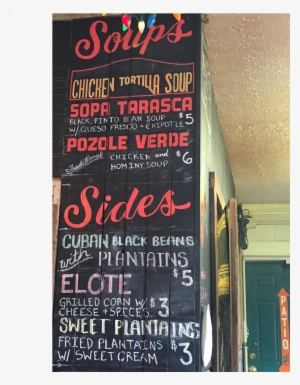 Soups
CHICKEN TORTILLA SOUP
SOPA TARASCA
BLACK, PINTO BEAN SOUP $5
W/ QUESO FRESCO + CHIPOTLE
POZOLE VERDE
CHICKEN and $6
HOMINY SOUP
Sides
CUBAN BLACK BEANS
with PLANTAINS
ELOTE $5
GRILLED CORN W/ $3
CHEESE + SPICES.
SWEET PLANTAINS
FRIED PLANTAINS $3
W/ SWEET CREAM
PATIO